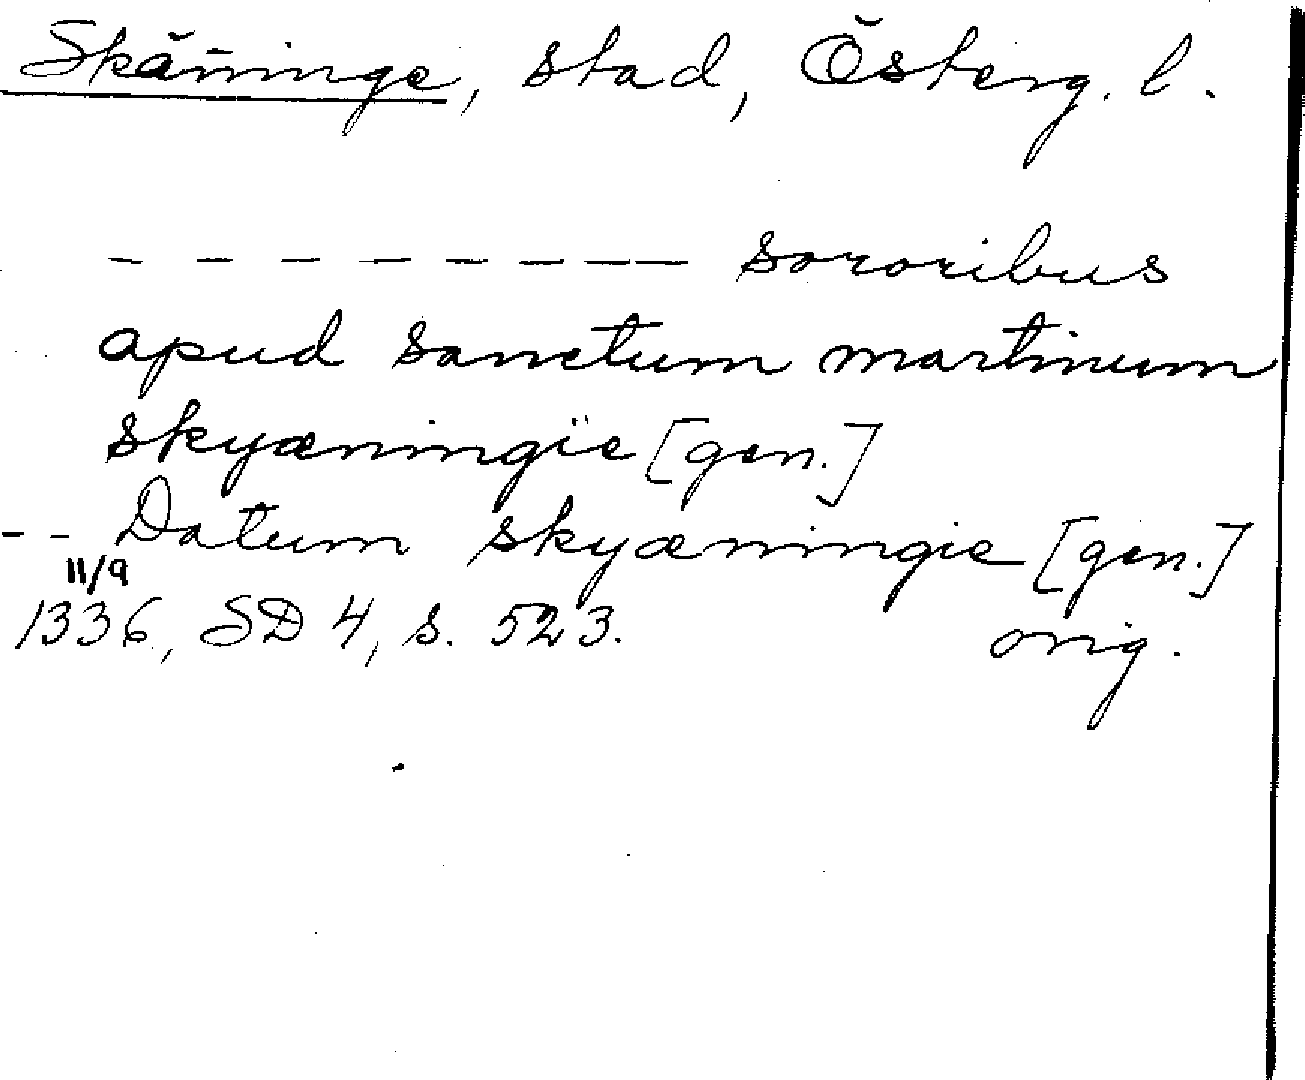 Skänninge, stad, Österg. l.
- - - - - - - - - sororibus
apud sanctum martinum
skyæningie [gen.]
- - Datum skyæningie [gen.]
11/9
1336, SD 4, s. 523. orig.